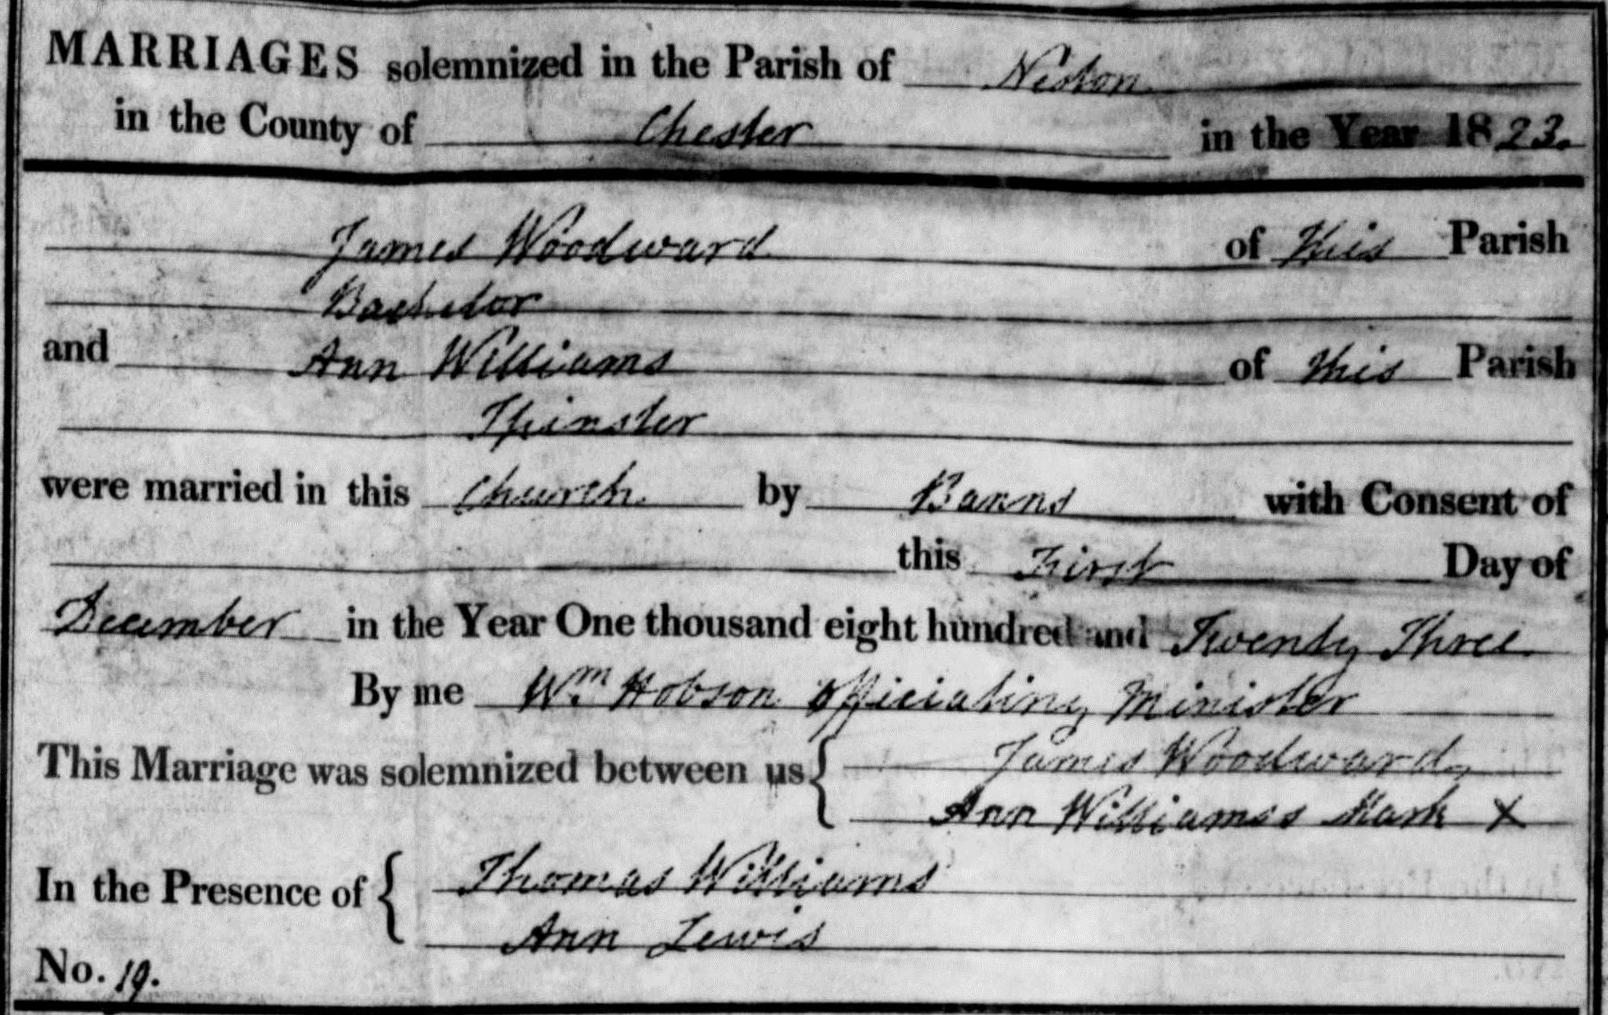 MARRIAGES solemnized in the Parish of Neston
in the County of Chester in the Year 1823.
James Woodward of this Parish
Bachelor
and Ann Williams of this Parish
Spinster
were married in this Church by Banns with Consent of
this First Day of
December in the Year One thousand eight hundred and Twenty Three
By me Wm. Hobson Officiating Minister
This Marriage was solemnized between us { James Woodward
Ann Williams's Mark X
In the Presence of { Thomas Williams
Ann Lewis
No. 19.